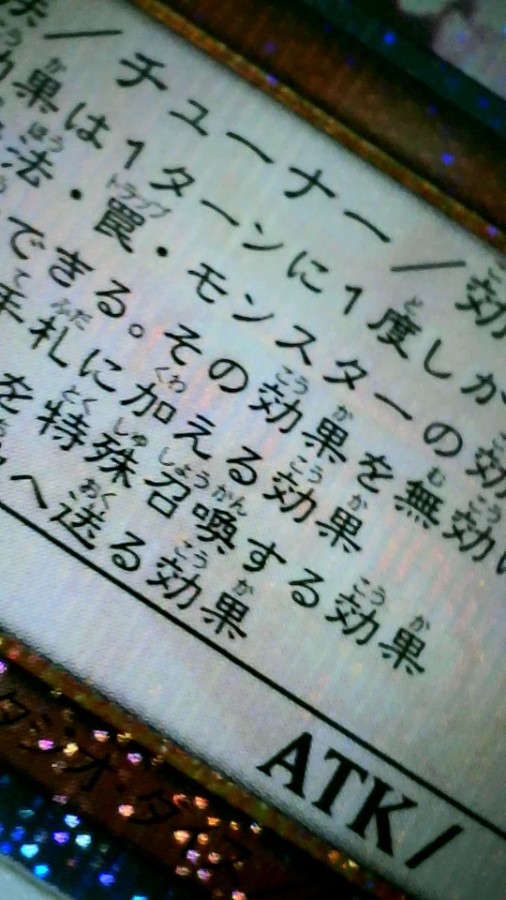 ／チューナー／効
効果は１ターンに１度しか
法・罠・モンスターの効
できる。その効果を無効
手札に加える効果
を特殊召喚する効果
へ送る効果
ATK/
スタジオ・ダイス